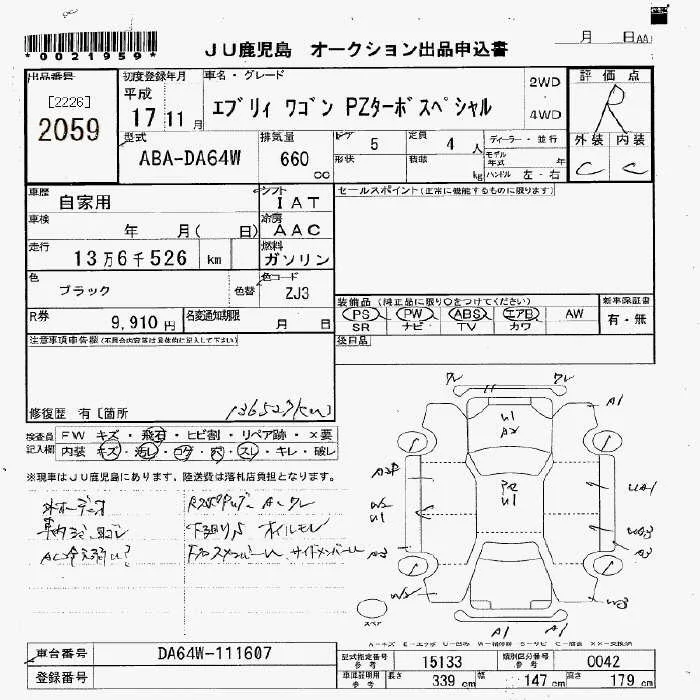 *0021959*
JU鹿児島 オークション出品申込書
月 日(AA)
出品番号
[2226]
2059
初度登録年月
平成
17 11月
車名・グレード
エブリィ ワゴン PZターボスペシャル
2WD
4WD
評価点
R
型式
ABA-DA64W
排気量
660
cc
ドア 5
定員 4 人
形状
積載 kg
ディーラー・並行
モデル年式 年
ハンドル 左・右
外装 内装
C C
車歴
自家用
シフト
IAT
車検
年 月( 日)
冷房
AAC
走行
13万6千526 km
燃料
ガソリン
色
ブラック
色替
色コード
ZJ3
R券
9,910円
名変通知期限
月 日
セールスポイント(正常に機能するものに限ります)
装備品(純正品に限り○をつけてください)
PS PW ABS エアB AW
SR ナビ TV カワ
新車保証書
有・無
後日品
注意事項車告欄(不具合内容等は具体的に記入して下さい)
修復歴 有[箇所
136527km]
検査員記入欄
FW キズ・飛石・ヒビ割・リペア跡・×要
内装 キズ・汚レ・コゲ・穴・スレ・キレ・破レ
※現車はJU鹿児島にあります、陸送費は落札店負担となります。
下廻り
オイルモレ
サイドメンバー
ワレ ワレ
A1
U1
A2
W2
U1
A1 A1
スペア
車台番号
DA64W-111607
登録番号
型式指定番号
参考
15133
類別区分番号
参考
0042
車庫証明用
参考
長さ
339 cm
幅
147 cm
高さ
179 cm